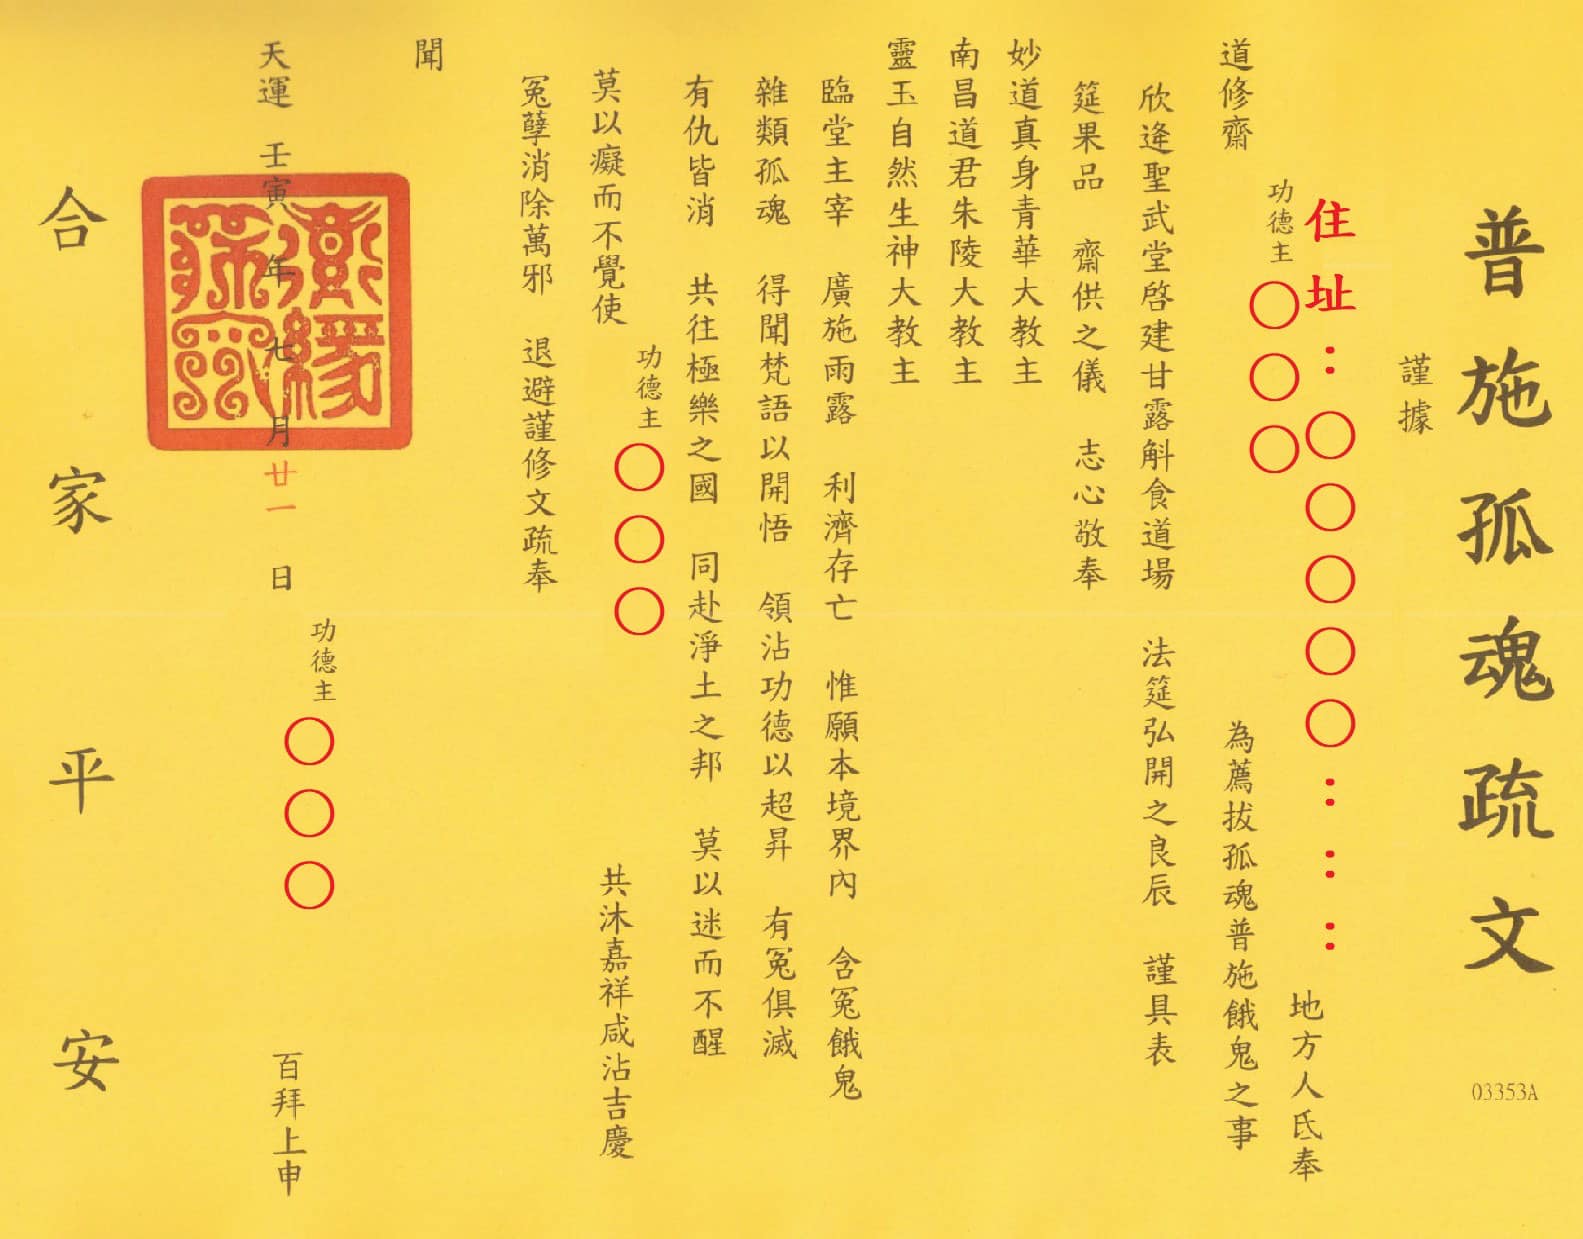 普施孤魂疏文
03353A
謹據
住址：〇〇〇〇〇：：：
地方人氏奉
功德主〇〇〇
道修齋
為薦拔孤魂普施餓鬼之事
欣逢聖武堂啓建甘露斛食道場　法筵弘開之良辰　謹具表
筵果品　齋供之儀　志心敬奉
妙道真身青華大教主
南昌道君朱陵大教主
靈玉自然生神大教主
臨堂主宰　廣施雨露　利濟存亡　惟願本境界內　含冤餓鬼
雜類孤魂　得聞梵語以開悟　領沾功德以超昇　有冤俱滅
有仇皆消　共往極樂之國　同赴淨土之邦　莫以迷而不醒
莫以癡而不覺使
功德主〇〇〇
共沐嘉祥咸沾吉慶
冤孽消除萬邪　退避謹修文疏奉
聞
天運　壬寅年七月廿一日
功德主〇〇〇
百拜上申
合家平安